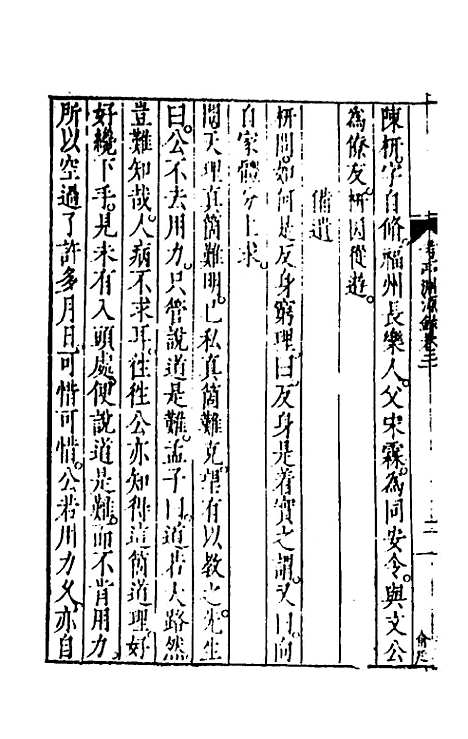 陳枅。字自脩。福州長樂人。父宋霖。為同安令。與文公
為僚友。枅因從遊。
備遺
枅問。如何是反身窮理。曰。反身是着實之謂。又曰。向
自家體分上求。
問。天理真箇難明。己私真箇難克。望有以教之。先生
曰。公不去用力。只管說道是難。孟子曰。道若大路然
豈難知哉。人病不求耳。往往公亦知得這箇道理好
好纔下手。見未有入頭處。便說道是難。而不肯用力
所以空過了許多月日。可惜可惜。公若用力久。亦自
淵源錄卷三